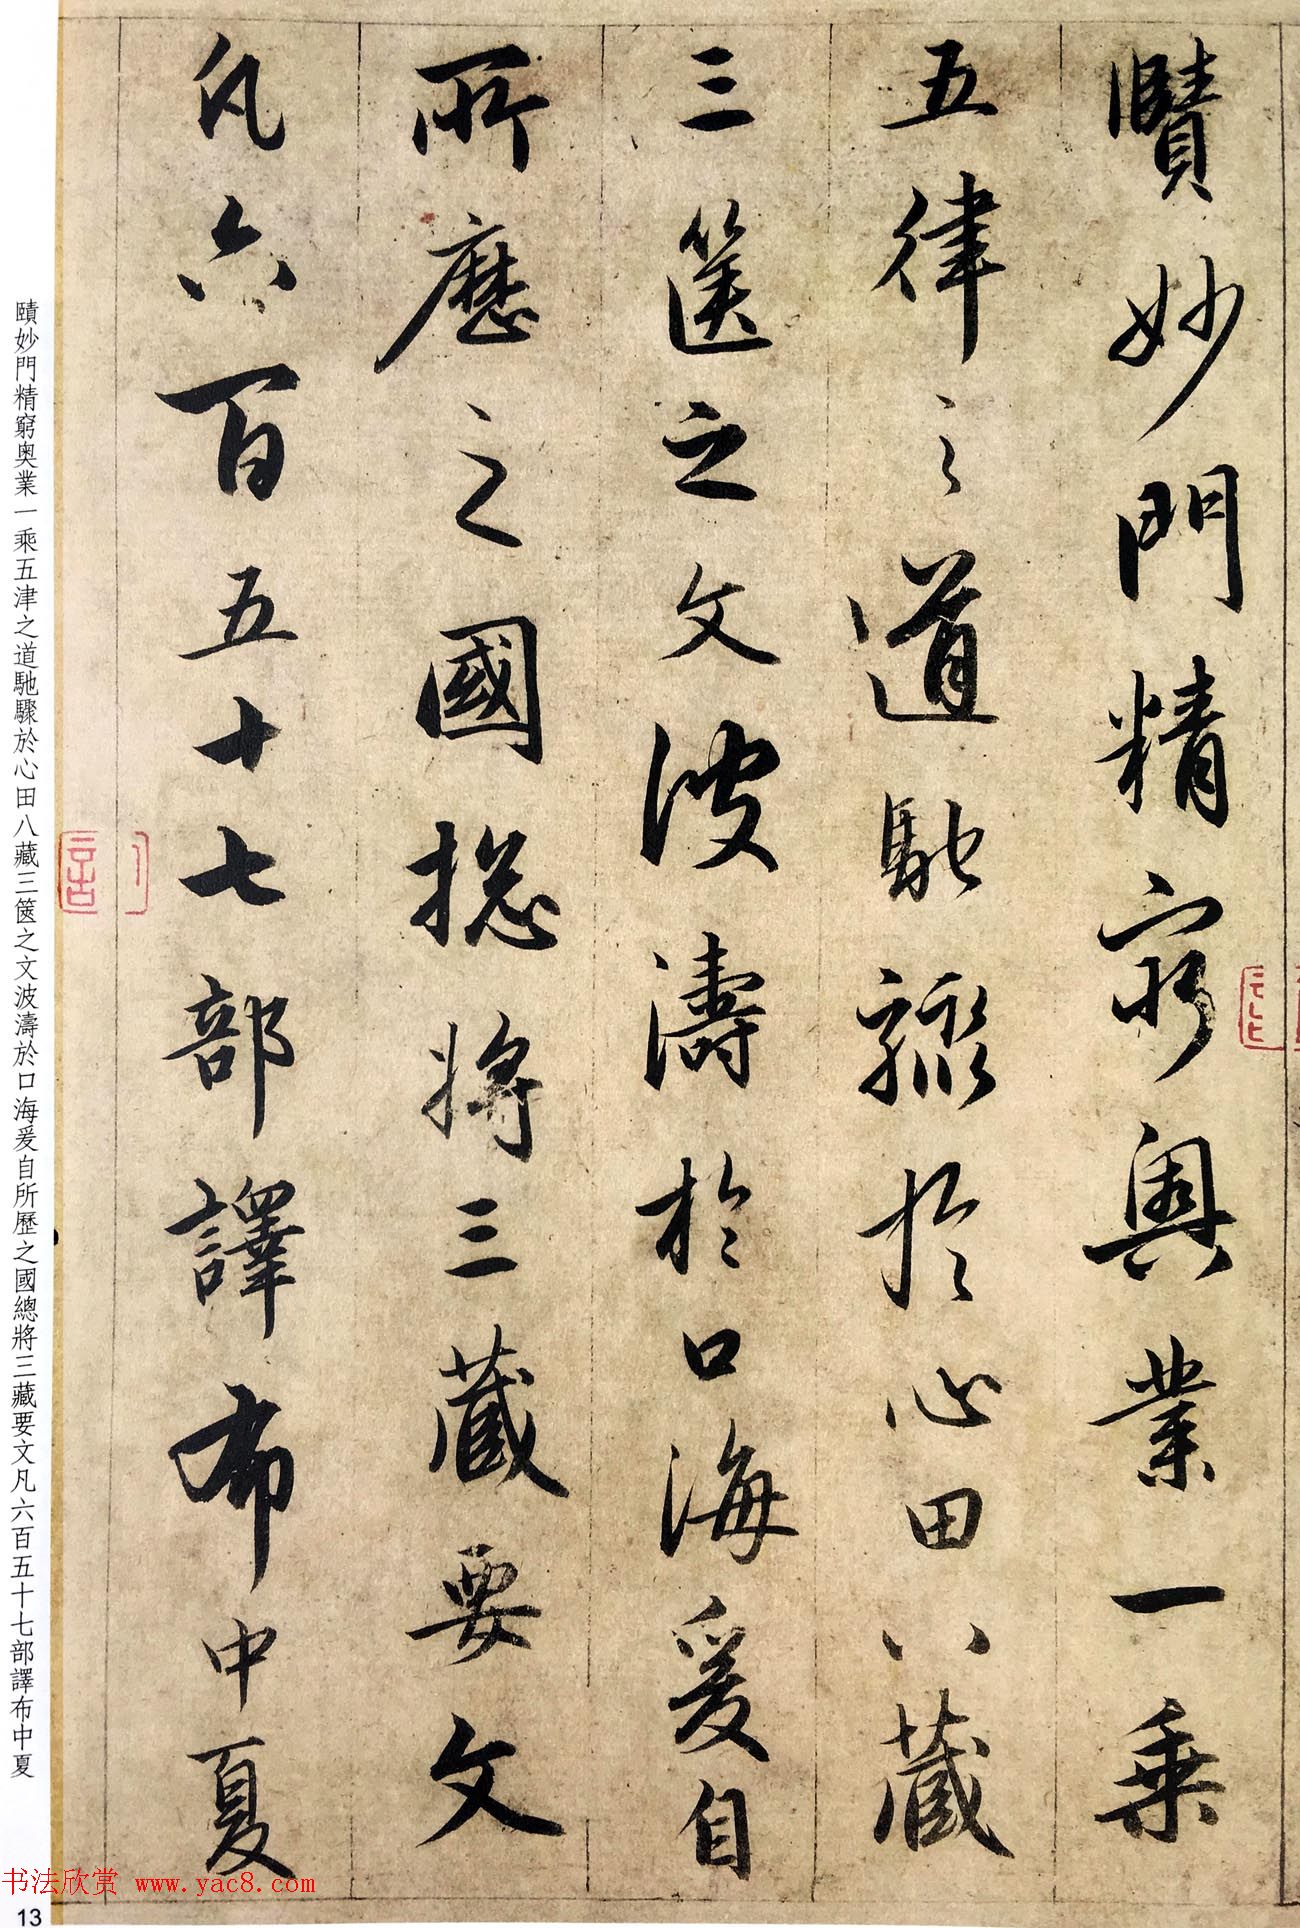 賾妙門精窮奧業一乘
五律之道馳驟於心田八藏
三篋之文波濤於口海爰自
所歷之國總將三藏要文
凡六百五十七部譯布中夏
賾妙門精窮奧業一乘五津之道馳驟於心田八藏三篋之文波濤於口海爰自所歷之國總將三藏要文凡六百五十七部譯布中夏
书法欣赏 www.yac8.com
13